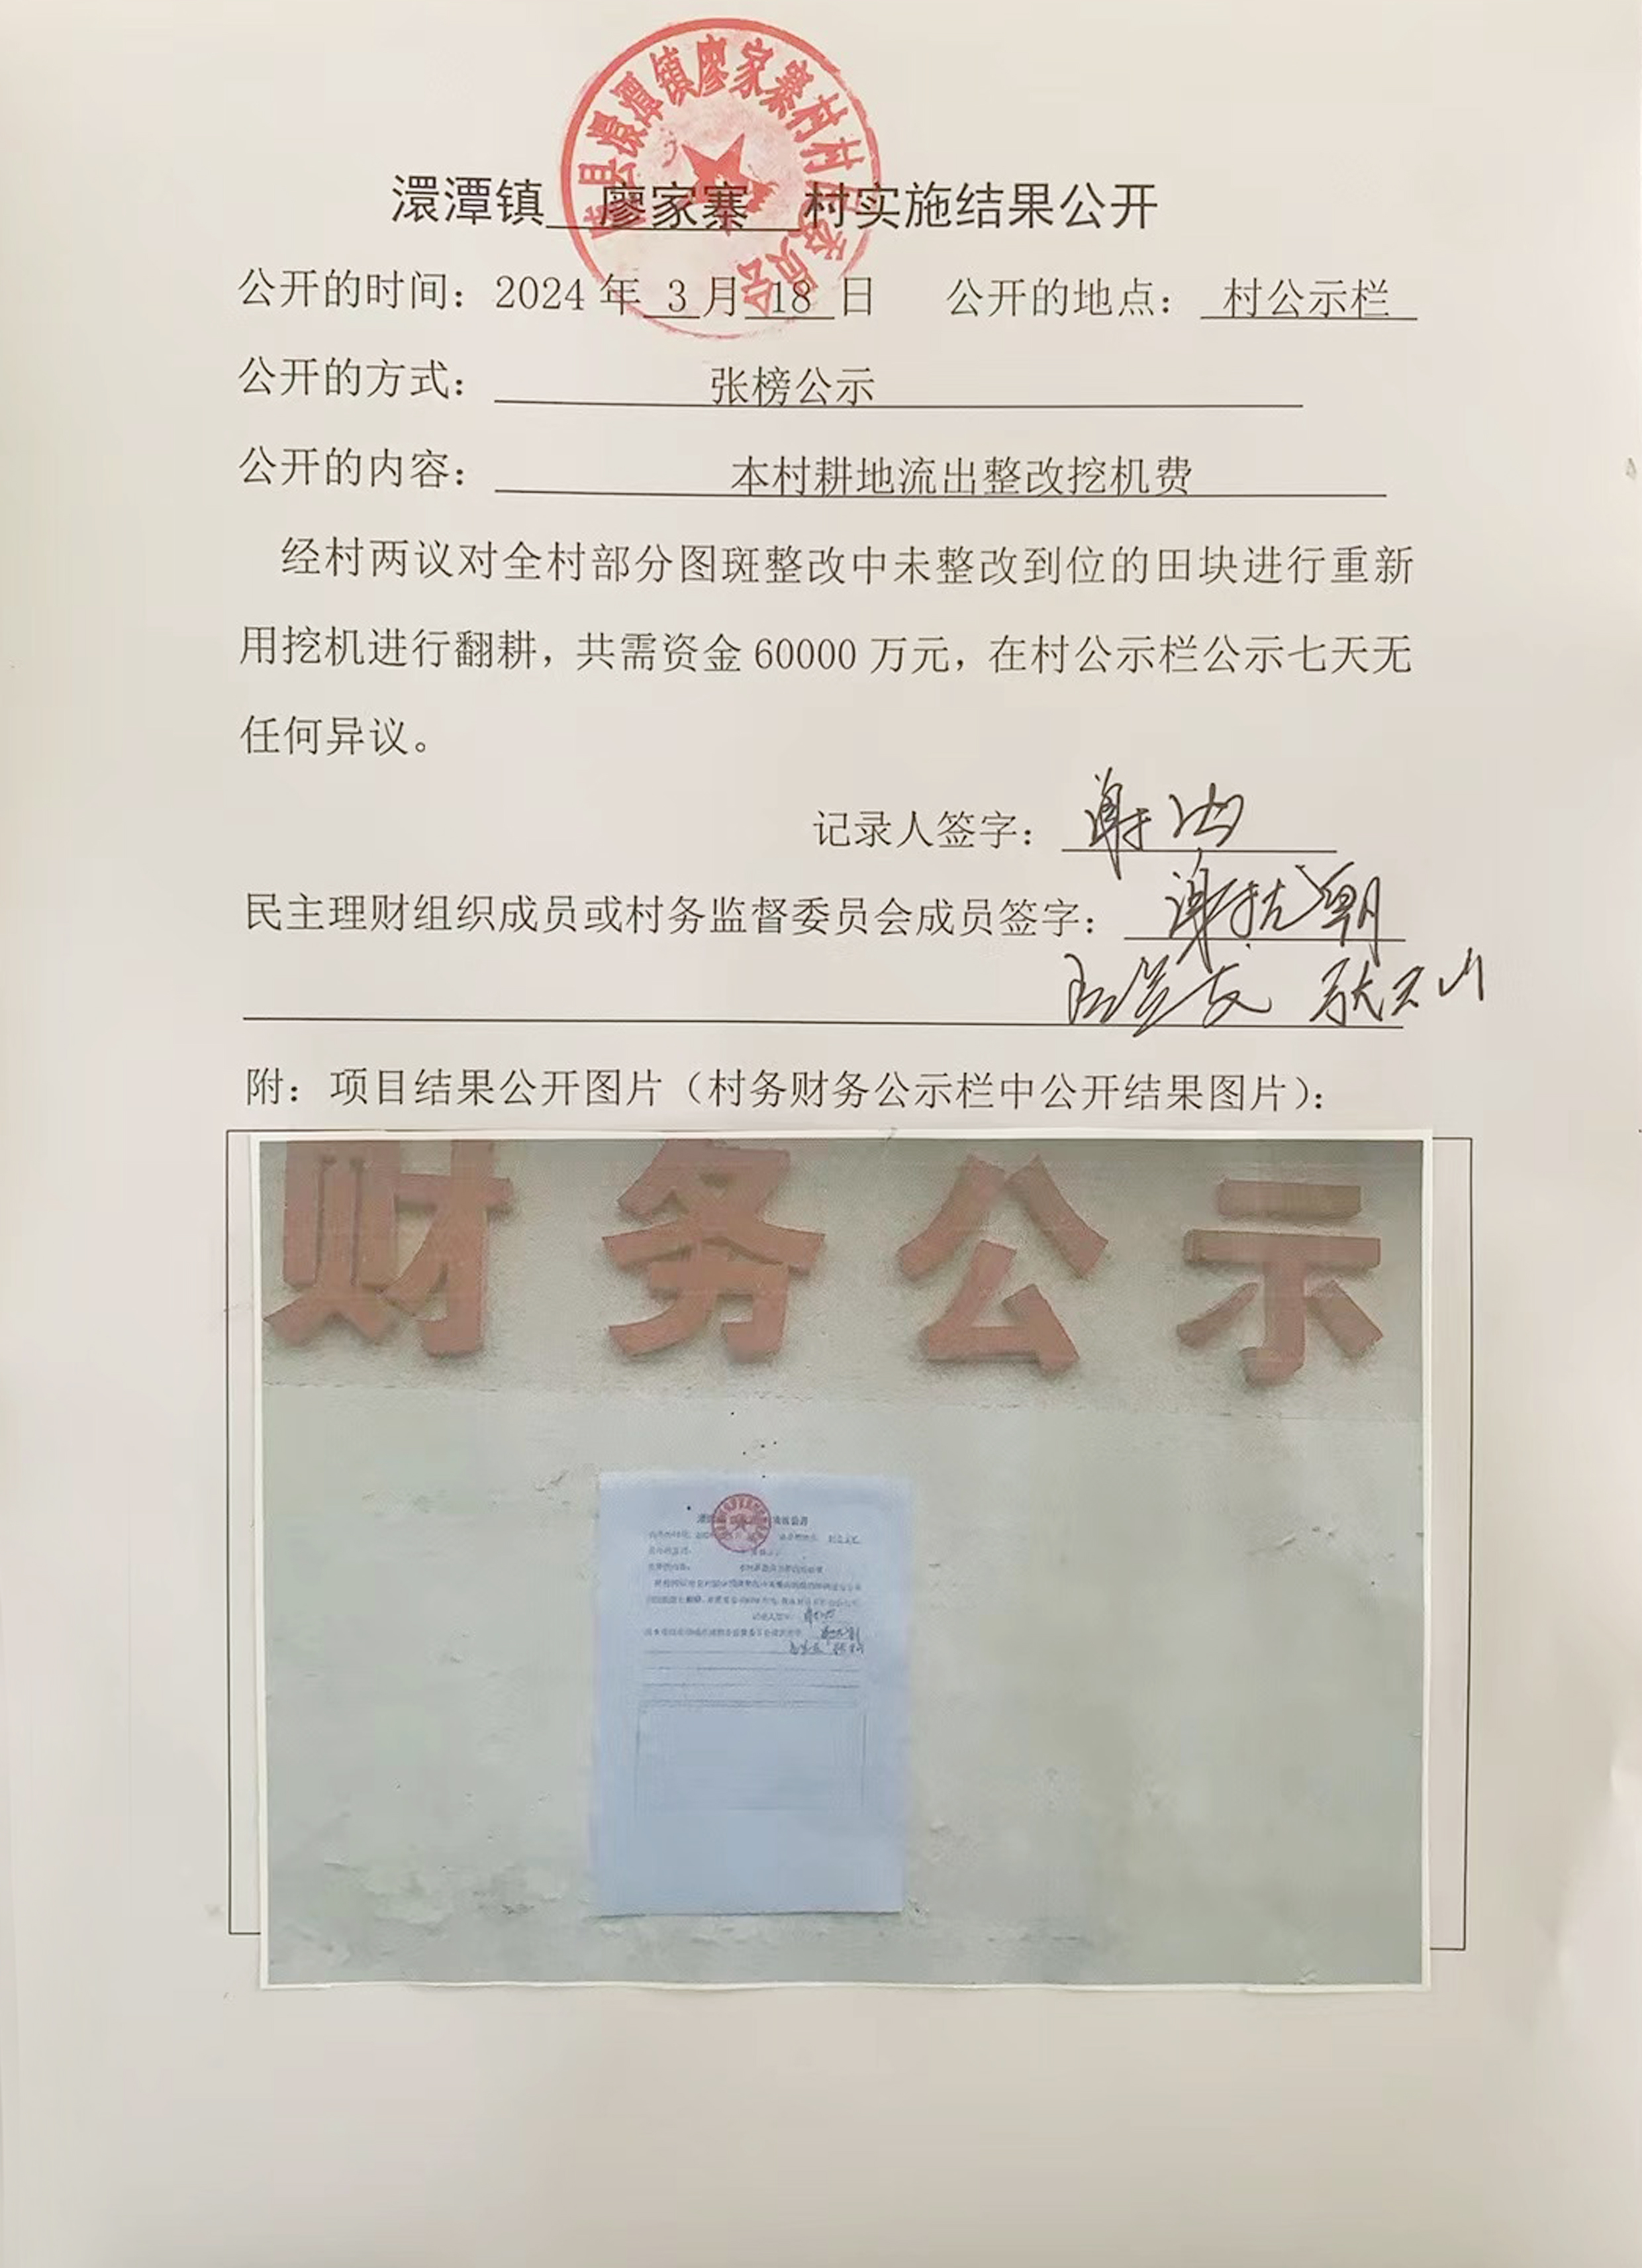 县澴潭镇廖家寨村村民委员会
澴潭镇 廖家寨 村实施结果公开
公开的时间：2024 年 3 月 18 日 公开的地点： 村公示栏
公开的方式： 张榜公示
公开的内容： 本村耕地流出整改挖机费
经村两议对全村部分图斑整改中未整改到位的田块进行重新
用挖机进行翻耕，共需资金 60000 万元，在村公示栏公示七天无
任何异议。
记录人签字：
民主理财组织成员或村务监督委员会成员签字：
附：项目结果公开图片（村务财务公示栏中公开结果图片）：
财务公示